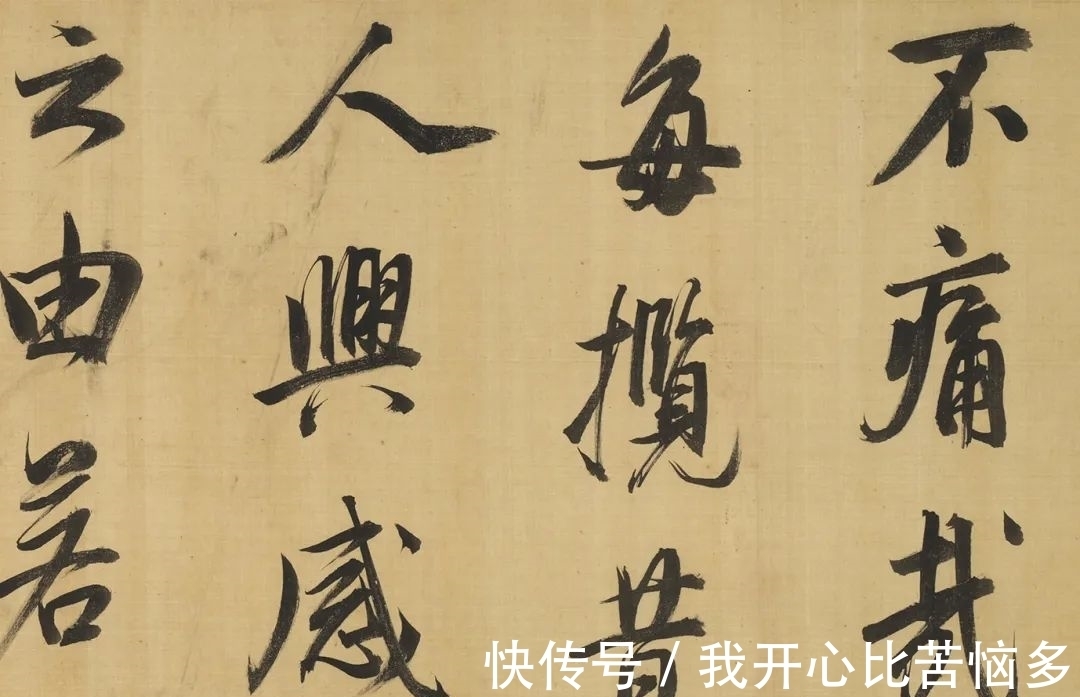 不痛哉
每攬昔
人興感
之由若
快传号 / 我开心比苦恼多